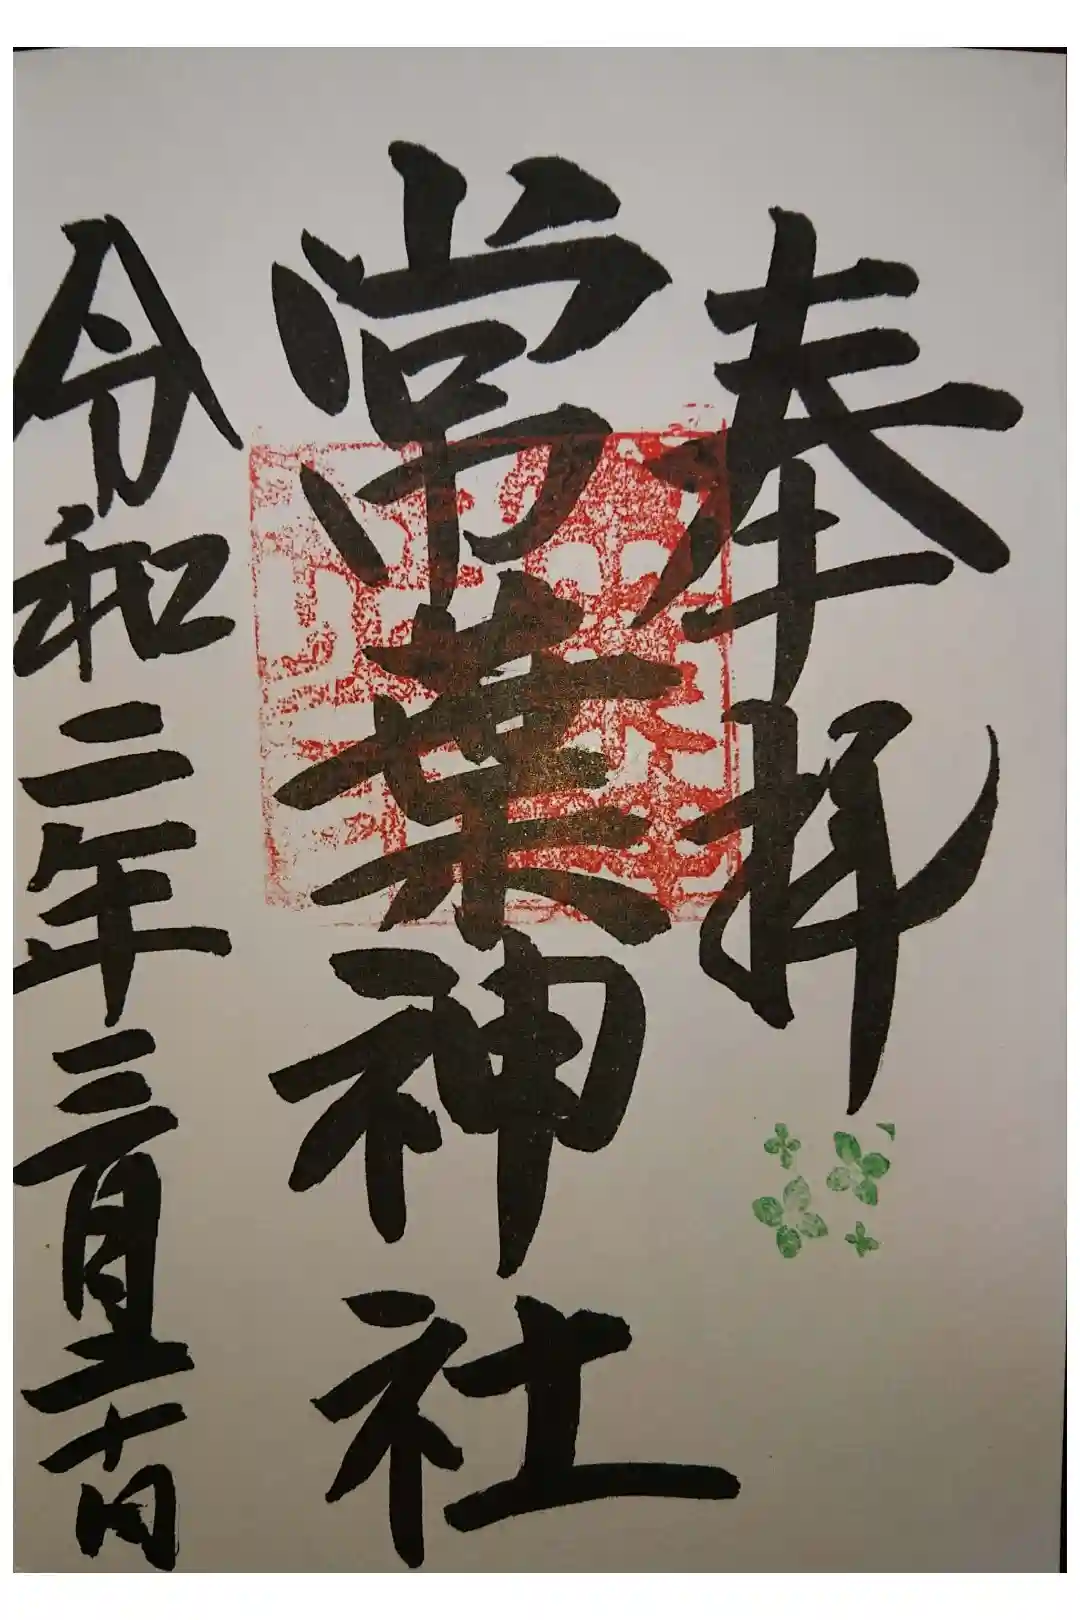 奉拝
常葉神社
令和二年三月二十日